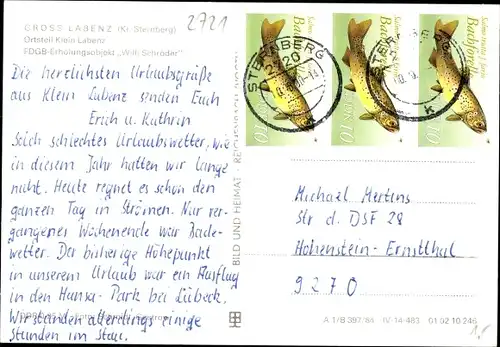 GROSS LABENZ (Kr. Sternberg)
Ortsteil Klein Labenz
FDGB-Erholungsobjekt „Willi Schröder"
2721
Die herzlichsten Urlaubsgrüße
aus Klein Labenz senden Euch
Erich u. Kathrin
Solch schlechtes Urlaubswetter, wie
in diesem Jahr hatten wir lange
nicht. Heute regnet es schon den
ganzen Tag in Strömen. Nur ver-
gangenes Wochenende war Bade-
wetter. Der bisherige Höhepunkt
in unserem Urlaub war ein Ausflug
in den Hansa-Park bei Lübeck.
Wir standen allerdings einige
Stunden im Stau.
BILD UND HEIMAT
REICHENBACH
STERNBERG
2720
Bachforelle
10
Bachforelle
10
Bachforelle
10
Michael Mertens
Str d. DSF 28
Hohenstein-Ernstthal
9270
IV-14-483
01 02 10 246